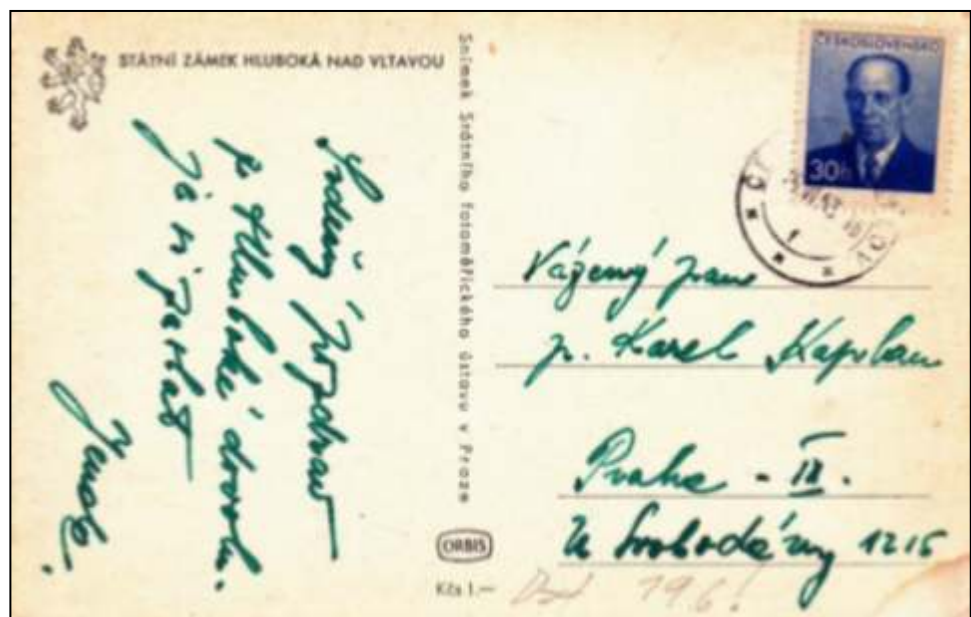 STÁTNÍ ZÁMEK HLUBOKÁ NAD VLTAVOU
Srdečný pozdrav
z Hluboké
Snímek Státního fotoměřického ústavu v Praze
ORBIS
Kčs 1.—
ČESKOSLOVENSKO
30h
Vážený pan
p. Karel Kaplan
Praha - IX.
U Svobodárny 1215